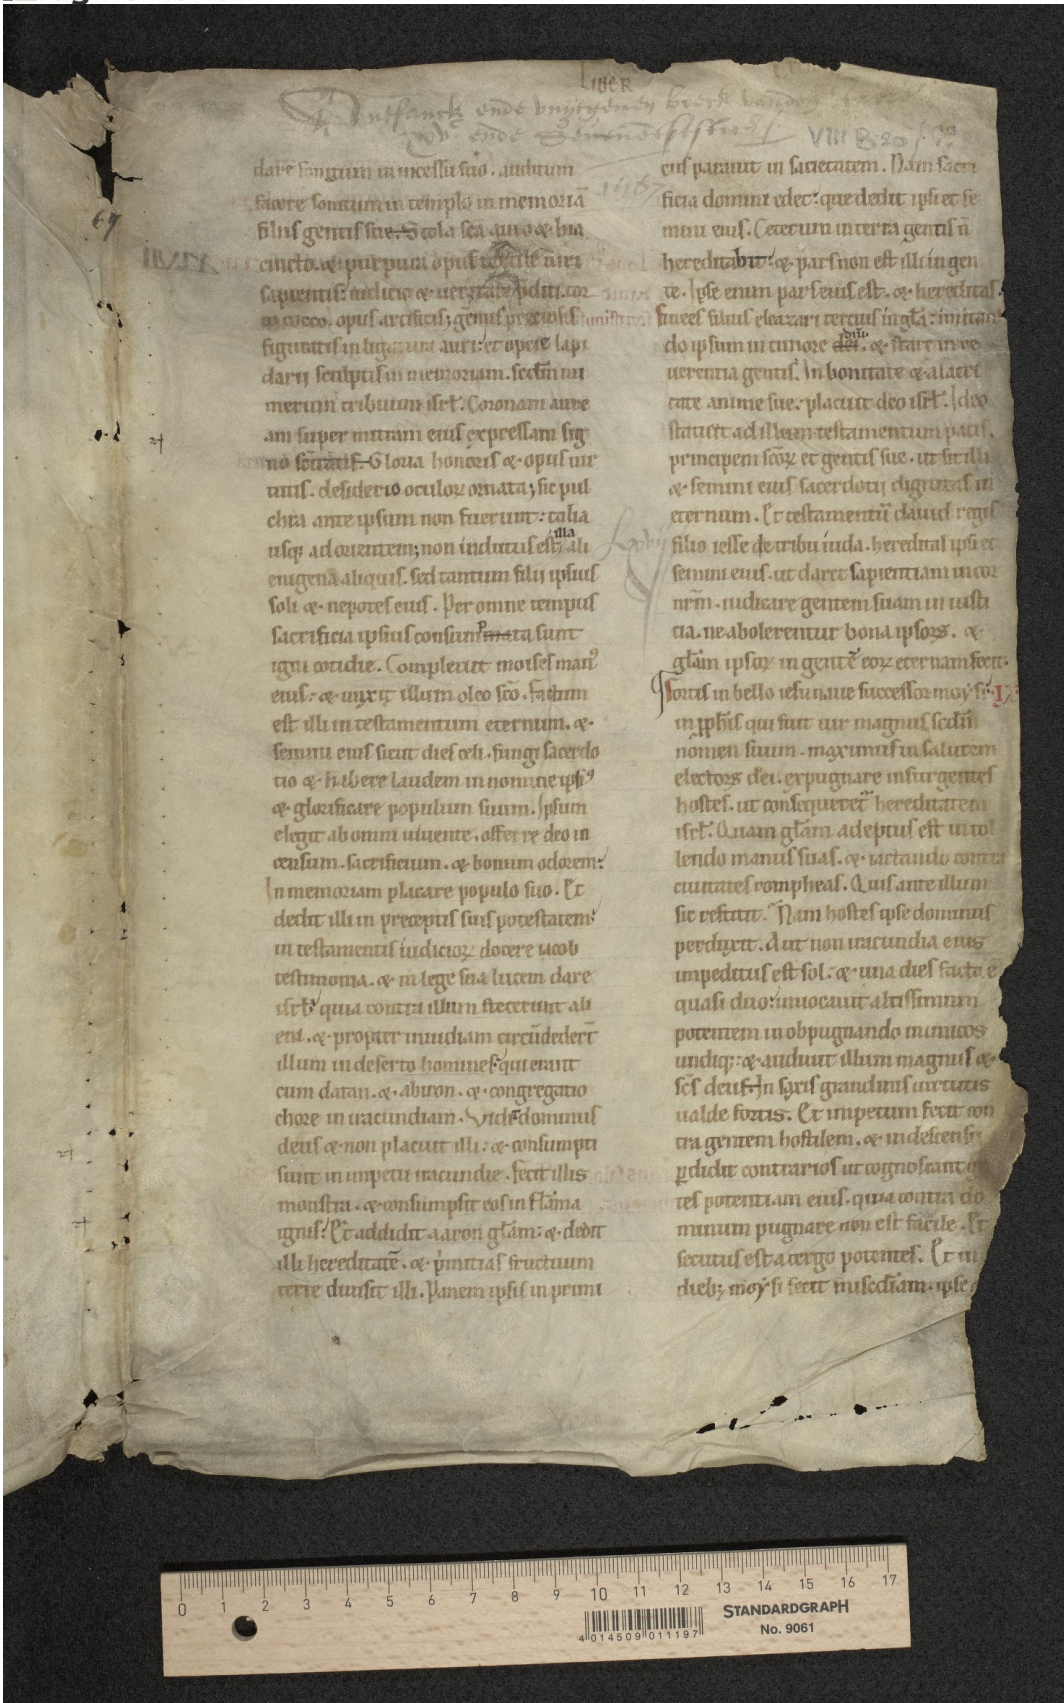 Liber
VIII B 20
67
dare sonitum in incessu suo. auditum
facere sonitum in templo in memoriā
filiis gentis sue. Stola scā auro & hia
cincto. & purpura opus textile uiri
sapientis: iudicio & ueritate p̄diti. tor
to cocco. opus artificis; gemis preciosis
figuratis in ligatura auri: et opere lapi
darii sculptis in memoriam. scdm̄ nu
merum tribuum isrl̄. Coronam aure
am super mitram eius expressam sig
no sc̄itatis. Gloria honoris & opus uir
tutis. desiderio oculoꝝ ornata; sic pul
chra ante ipsum non fuerunt: talia
usq; ad orientem; non indutus est illa ali
enigena aliquis. sed tantum filii ipsius
soli & nepotes eius. Per omne tempus
sacrificia ipsius consumpta sunt
igni cotidie. Compleuit moises manꝰ
eius: & unxit illum oleo sc̄o. Factum
est illi in testamentum eternum. &
semini eius sicut dies celi. fungi sacerdo
tio & habere laudem in nomine ipsiꝰ
& glorificare populum suum. Ipsum
elegit ab omni uiuente. offerre deo in
censum. sacrificium. & bonum odorem:
In memoriam placare populo suo. Et
dedit illi in preceptis suis potestatem
in testamentis iudicioꝝ docere iacob
testimonia. & in lege sua lucem dare
isrl̄. quia contra illum steterunt ali
eni. & propter inuidiam circūdeder̄t
illum in deserto homines. qui erant
cum datan. & abiron. & congregatio
chore in iracundiam. Vidit dominus
deus & non placuit illi: & consumpti
sunt in impetu iracundie. Fecit illis
monstra. & consumpsit eos in flāma
ignis. Et addidit aaron gl̄am: & dedit
illi hereditatē. & p̍mitias fructuum
terre diuisit illi. Panem ipsis in primi
eius parauit in sacietatem. Nam sacri
ficia domini edec: que dedit ipsi et se
mini eius. Ceterum in terra gentis n̄
hereditabit: & pars non est illi in gen
te. Ipse enim pars eius est. & hereditas.
finees filius eleazari tercius in gl̄a: imitan
do ipsum in timore dei dn̄i. & stare in re
uerentia gentis. In bonitate & alacri
tate anime sue. placuit deo isrl̄. Ideo
statuit ad illum testamentum pacis.
principem sc̄oꝝ et gentis sue. ut sit illi
& semini eius sacerdotii dignitas in
eternum. Et testamentū dauid regis
filio iesse de tribu iuda. hereditas ipsi et
semini eius. ut daret sapientiam in cor
nr̄m. iudicare gentem suam in iusti
tia. ne abolerentur bona ipsoꝝ. &
gl̄am ipsoꝝ in gentē eoꝝ eternam fecit.
Fortis in bello iesu naue successor moysi
in pph̄is qui fuit uir magnus scdm̄
nomen suum. maximus in salutem
electoꝝ dei. expugnare insurgentes
hostes. ut consequeret̃ hereditatem
isrl̄. Quam gl̄am adeptus est in tol
lendo manus suas. & iactando contra
ciuitates rompheas. Quis ante illum
sic restitit. Nam hostes ipse dominus
perduxit. Aut non iracundia eius
impeditus est sol: & una dies facta ē
quasi duo: inuocauit altissimum
potentem in obpugnando inimicos
undiq;: & audiuit illum magnus &
sc̄s deus. In saxis grandinis uirtutis
ualde fortis. Et impetum fecit con
tra gentem hostilem. & in descensu
ꝑdidit contrarios ut cognoscant ge
tes potentiam eius. quia contra do
minum pugnare non est facile. Et
secutus est a tergo potentes. Et in
diebꝫ moysi fecit misc̄diam. ipse
0 1 2 3 4 5 6 7 8 9 10 11 12 13 14 15 16 17
STANDARDGRAPH
No. 9061
4 014509 011197